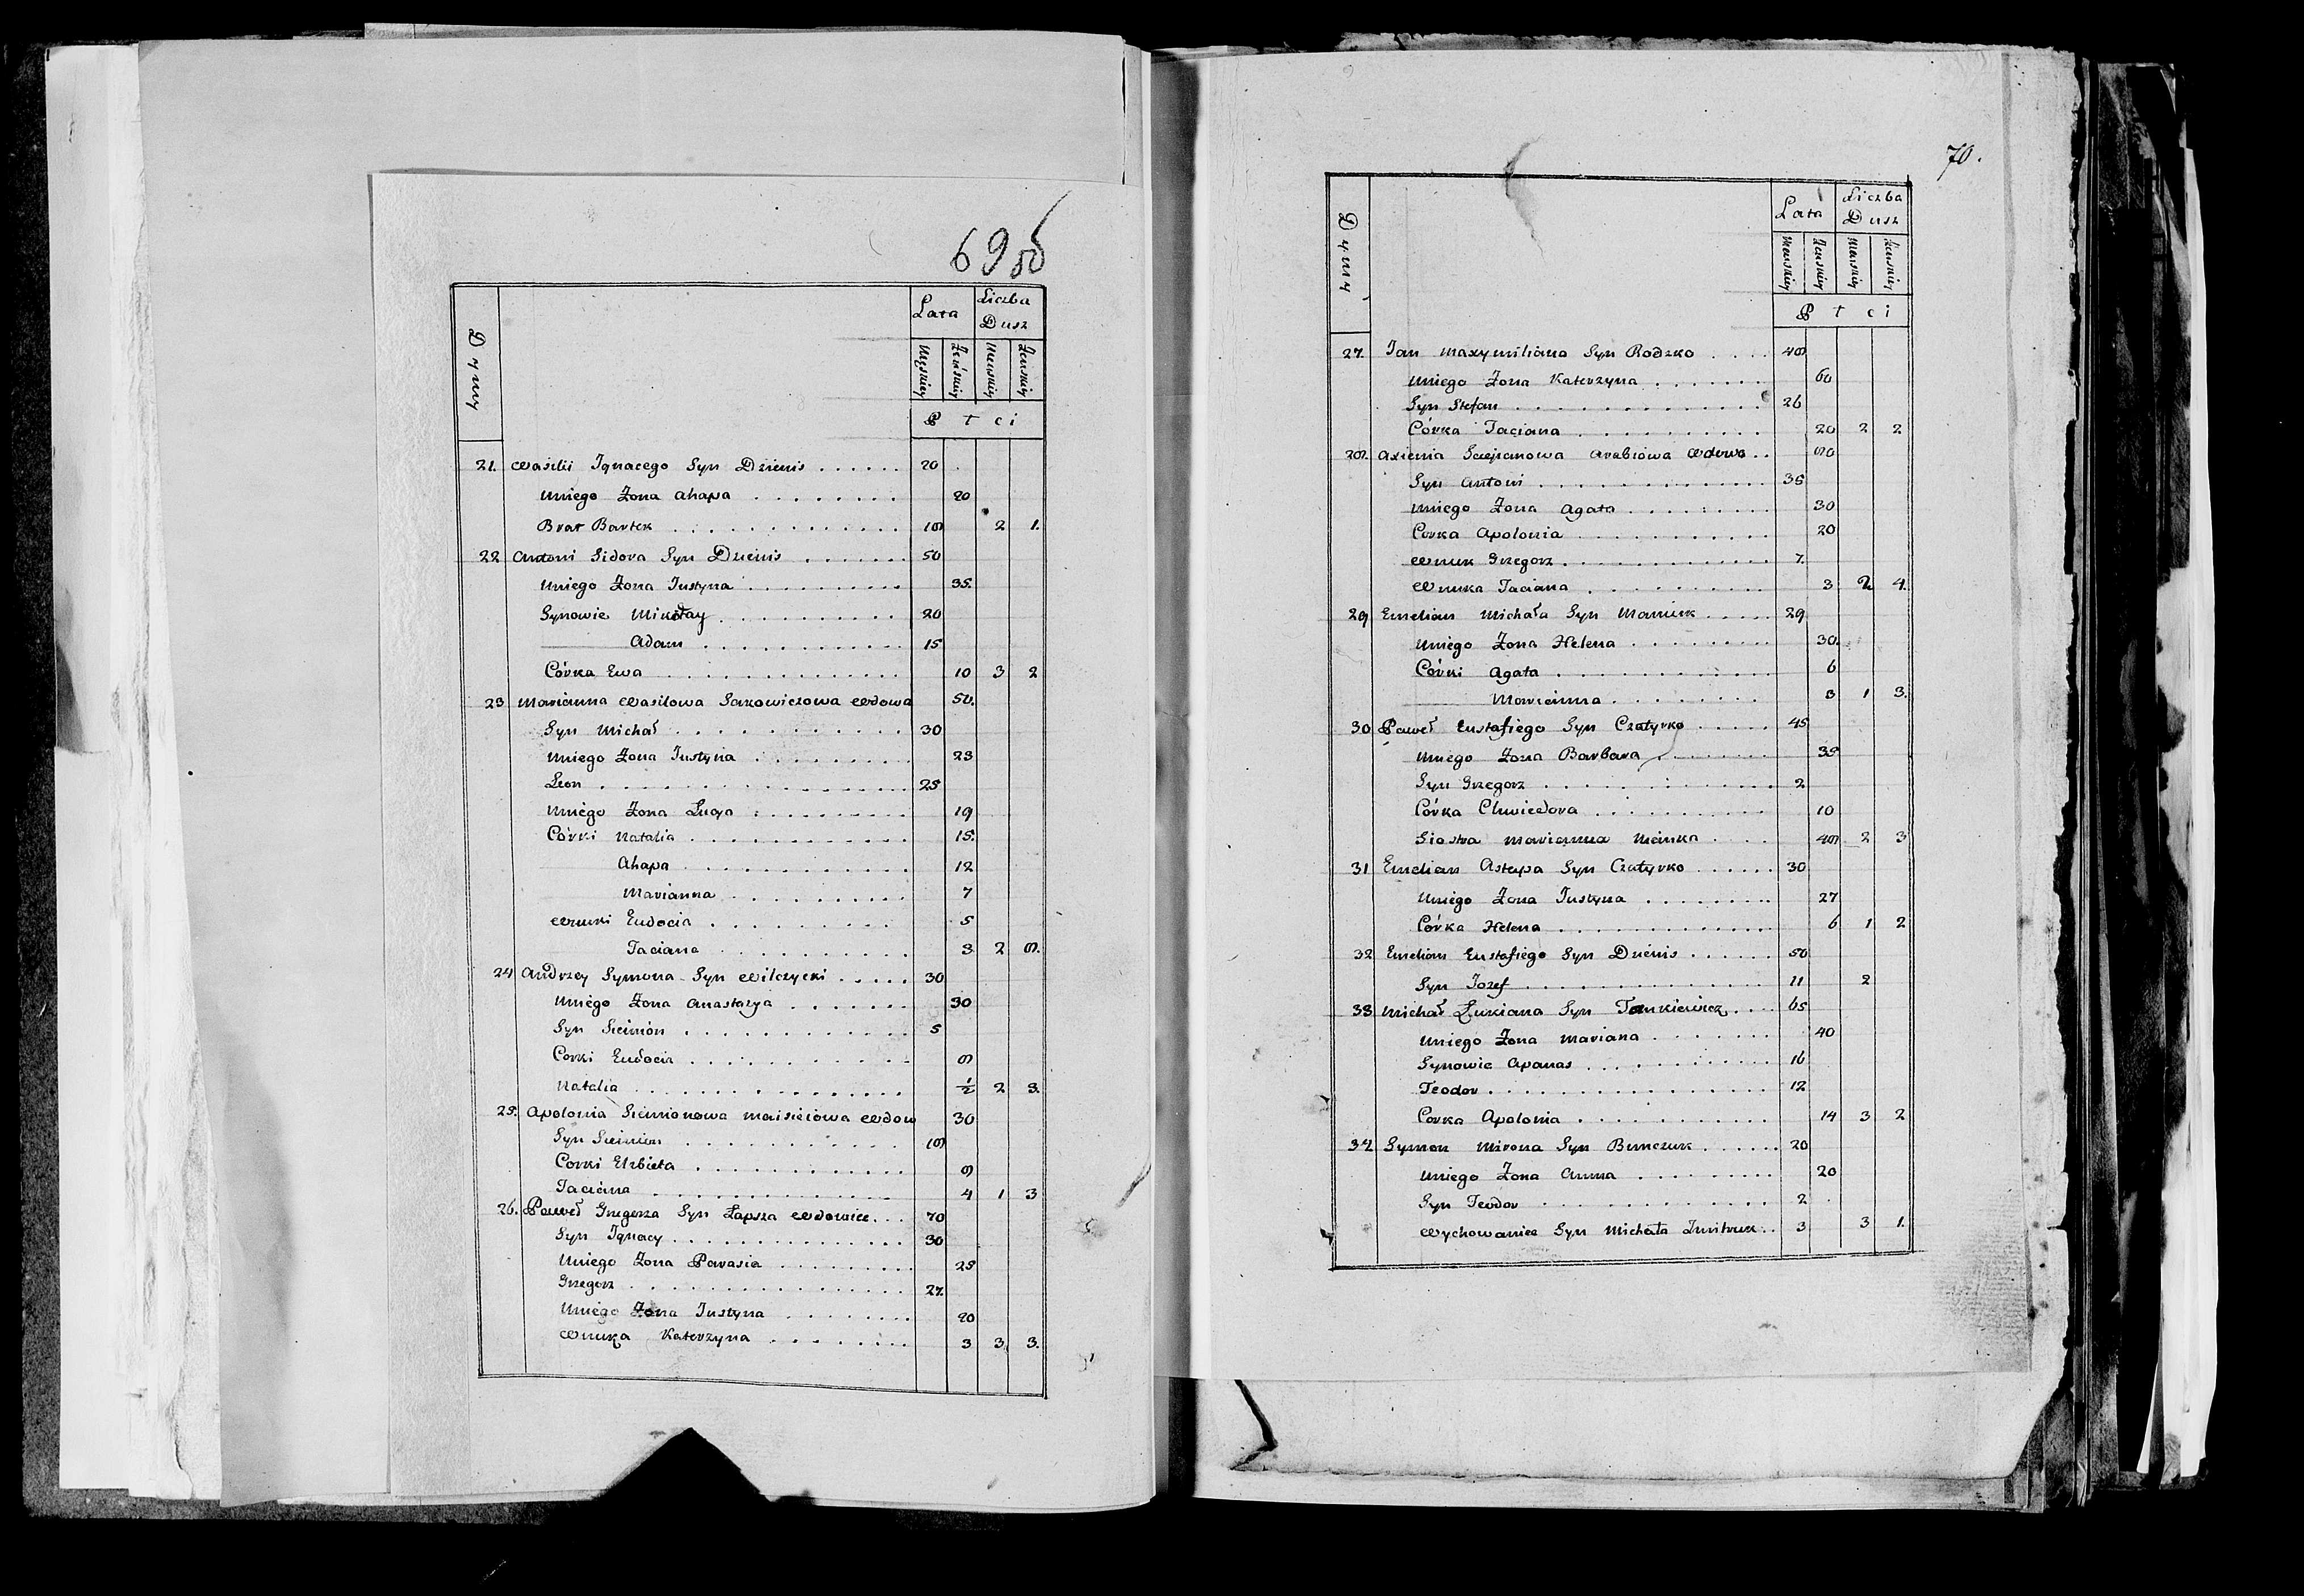 69об
Dymy
Lata
Liczba Dusz
Męskiey
Żeńskiey
Menskiey
Żenskiey
Płci
21. Wasilii Ignacego Syn Dzienis . . . . . . 20
Uniego Żona Ahapa . . . . . . . . 20
Brat Bartek . . . . . . . . . . . . 18 2 1.
22 Antoni Sidora Syn Dzienis . . . . . . . 50
Uniego Żona Justyna . . . . . . . . . . 35.
Synowie Mikołay . . . . . . . . . . 20
Adam . . . . . . . . . . . 15
Córka Ewa . . . . . . . . . . . . . . 10 3 2
23 Marianna Wasilowa Sakowiczowa Wdowa 50.
Syn Michał . . . . . . . . . . . . 30
Uniego Żona Justyna . . . . . . . . . 23
Leon . . . . . . . . . . . . . . . . 25
Uniego Żona Łucya . . . . . . . . . . 19
Córki Natalia . . . . . . . . . . . . 15.
Ahapa . . . . . . . . . . . . 12
Marianna . . . . . . . . . . 7
Wnuki Eudocia . . . . . . . . . . 5
Taciana . . . . . . . . . . . 3 2 8.
24 Andrzey Symona Syn Wilczycki . . . . . 30
Uniego Żona Anastazya . . . . . . . 30
Syn Siemion . . . . . . . . . . . . 5
Corki Eudocia . . . . . . . . . . . 8
Natalia . . . . . . . . . . . . . . . ½ 2 3.
25. Apolonia Siemionowa Maisieiowa Wdow 30
Syn Siemion . . . . . . . . . . . . 18
Corki Elzbieta . . . . . . . . . . . 8
Taciana . . . . . . . . . . . . . . 4 1 3
26. Paweł Grzegorza Syn Łapsza Wdowiec . . . 70
Syn Ignacy . . . . . . . . . . . . . . 30
Uniego Żona Parasia . . . . . . . . . 25
Grzegorz . . . . . . . . . . . . . . . . 27.
Uniego Żona Justyna . . . . . . . . 20
Wnuka Katerzyna . . . . . . . . . 3 3 3.
70.
Dymy
Lata
Liczba Dusz
Menskiey
Żenskiey
Menskiey
Żenskiey
Płci
27. Jan Maxymiliana Syn Rodzko . . . . 48
Uniego Żona Katerzyna . . . . . . . 60
Syn Stefan . . . . . . . . . . . . . 26
Córka Taciana . . . . . . . . . . 20 2 2
28. Axienia Sciepanowa Arabiowa Wdowa . . 80
Syn Antoni . . . . . . . . . . . . . . 35
Uniego Żona Agata . . . . . . . . . 30
Corka Apolonia . . . . . . . . . . . 20
Wnuk Grzegorz . . . . . . . . . . . . . 7.
Wnuka Taciana . . . . . . . . . . 3 2 4.
29 Emelian Michała Syn Maniuk . . . . . 29
Uniego Żona Helena . . . . . . . . . 30.
Córki Agata . . . . . . . . . . . . . 6
Marianna . . . . . . . . . 3 1 3.
30 Paweł Eustafiego Syn Czatyrko . . . . . 45
Uniego Żona Barbara . . . . . . . . 35
Syn Grzegorz . . . . . . . . . . . . . . 2
Córka Chwiedora . . . . . . . . . . . 10
Siostra Marianna . . . . 48 2 3
31 Emelian Astapa Syn Czatyrko . . . . . . 30
Uniego Żona Justyna . . . . . . . . . 27
Córka Helena . . . . . . . . . . . . . 6 1 2
32 Emelian Eustafiego Syn Dzienis . . . . . . 50
Syn Jozef . . . . . . . . . . . . . . . 11 2
33 Michał Łukiana Syn Tankiewicz . . . . 65
Uniego Żona Mariana . . . . . . . 40
Synowie Apanas . . . . . . . . . . . . 16
Teodor . . . . . . . . . . . . . . . . . 12
Corka Apolonia . . . . . . . . . . . . 14 3 2
34 Symon Mirona Syn Bunczuk . . . . . . 20
Uniego Żona Anna . . . . . . . . . 20
Syn Teodor . . . . . . . . . . . . . . 2
Wychowaniec Syn Michała Dmitruk . . 3 3 1.